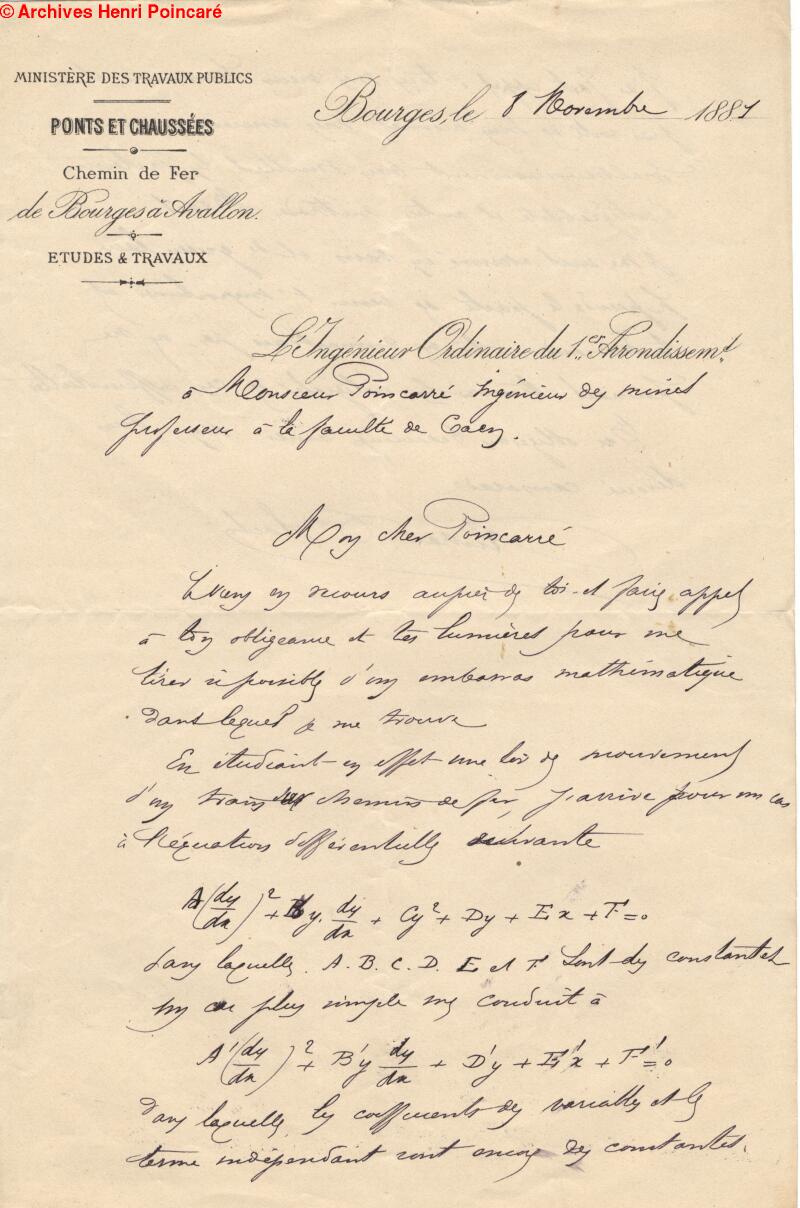 © Archives Henri Poincaré
MINISTÈRE DES TRAVAUX PUBLICS
PONTS ET CHAUSSÉES
Chemin de Fer
de Bourges à Avallon.
ETUDES & TRAVAUX
Bourges, le 8 Novembre 1881
L'Ingénieur Ordinaire du 1er Arrondissemt
à Monsieur Poincarré Ingénieur des mines
professeur à la faculté de Caen.
Mon cher Poincarré
Je viens en recours auprès de toi et faire appel
à ton obligeance et tes lumières pour me
tirer si possible d'un embarras mathématique
dans lequel je me trouve
En étudiant en effet une loi de mouvement
d'un train de chemins de fer, j'arrive pour un cas
à l'équation différentielle suivante
A(dy/dx)² + By. dy/dx + Cy² + Dy + Ex + F = 0
dans laquelle A. B. C. D. E et F sont des constantes
un cas plus simple me conduit à
A'(dy/dx)² + B'y dy/dx + D'y + E'x + F' = 0
dans laquelle les coefficients des variables et le
terme indépendant sont encore des constantes.